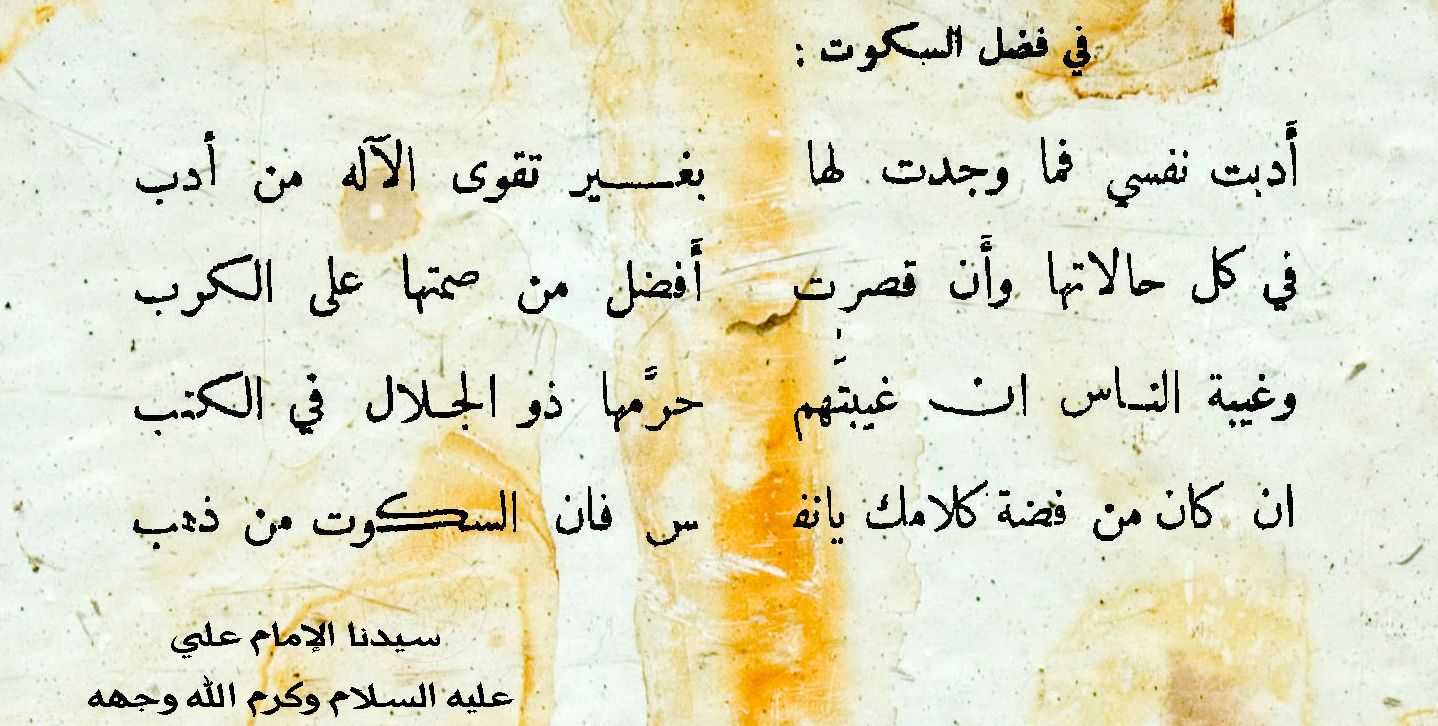 في فضل السكوت :
أَدبت نفسي فما وجدت لها بغـــير تقوى الآله من أدب
في كل حالاتها وأَن قصرت أَفضل من صمتها على الكرب
وغيبة النـاس ان غيبتَهم حرَّمها ذو الجـلال في الكتب
ان كان من فضة كلامك يانفـ س فان السكوت من ذهب
سيدنا الإمام علي
عليه السلام وكرم الله وجهه